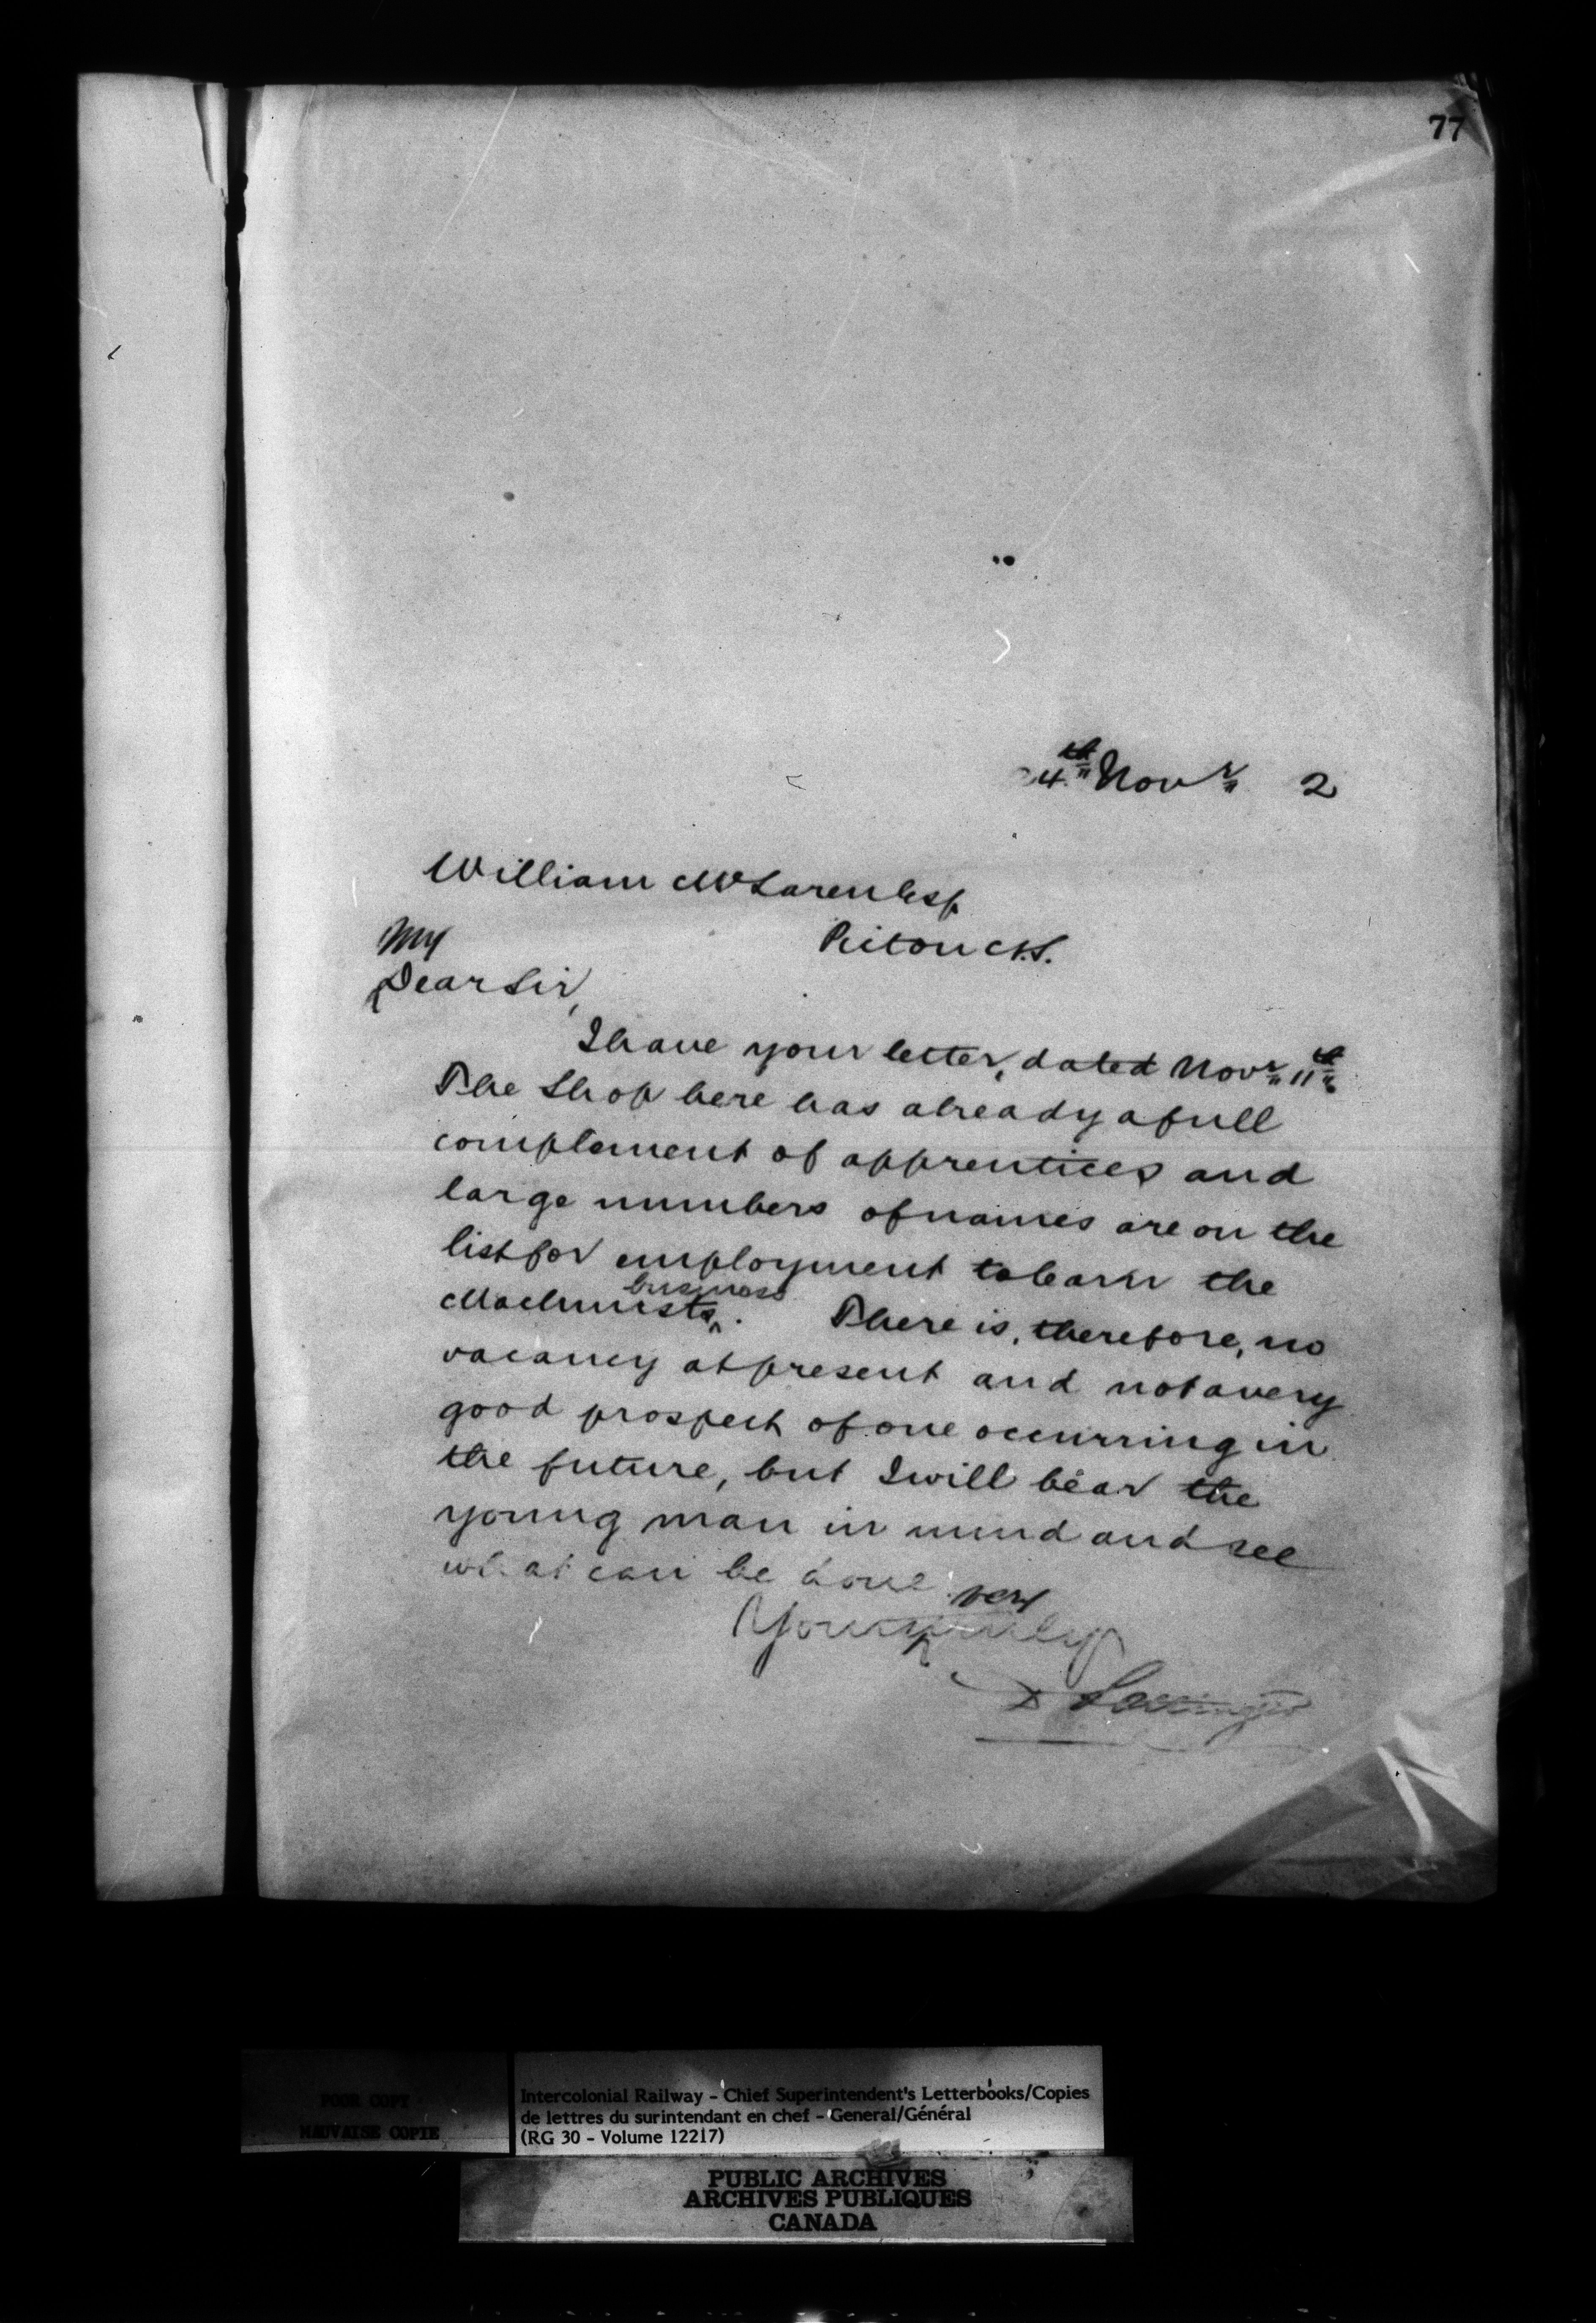 77
4th Novr 2
William McLaren Esq
Pictou N.S.
My
Dear Sir,
I have your letter, dated Novr 11th
The Shop here has already a full
complement of apprentices and
large numbers of names are on the
list for employment to learn the
business
Machinists. There is, therefore, no
vacancy at present and not a very
good prospect of one occurring in
the future, but I will bear the
young man in mind and see
what can be done.
very
Yours truly
D Pottinger
POOR COPY
MAUVAISE COPIE
Intercolonial Railway - Chief Superintendent's Letterbooks/Copies
de lettres du surintendant en chef - General/Général
(RG 30 - Volume 12217)
PUBLIC ARCHIVES
ARCHIVES PUBLIQUES
CANADA